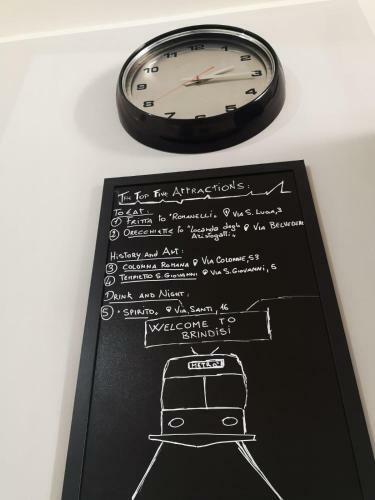 12
11
1
10
2
9
3
8
4
7
6
5
The Top Five Attractions:
To Eat:
① Fritta to "Romanelli". Via S. Lucia, 3
② Orecchiette to "Locanda degli Aristogatti". Via Belvedere
History and Art:
③ Colonna Romana Via Colonne, 53
④ Tempietto S. Giovanni Via S. Giovanni, 5
Drink and Night:
⑤ "Spirito. Via Santi, 16
Welcome to
Brindisi
METRO